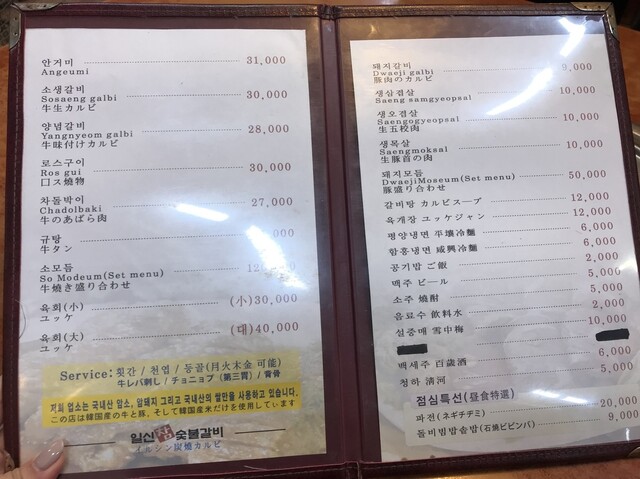 안거미 31,000
Angeumi
소생갈비 30,000
Sosaeng galbi
牛生カルビ
양념갈비 28,000
Yangnyeom galbi
牛味付けカルビ
로스구이 30,000
Ros gui
口ス燒物
차돌박이 27,000
Chadolbaki
牛のあばら肉
규탕 000
牛タン
소모듬
So Modeum(Set menu)
牛焼き盛り合わせ
육회(小) (小)30,000
ユッケ
육회(大) (대)40,000
ユッケ
Service: 횟간 / 천엽 / 등골(月火木金 可能)
牛レバ刺し / チョニョプ(第三胃) / 背骨
저희 업소는 국내산 암소, 암퇘지 그리고 국내산의 쌀만을 사용하고 있습니다.
この店は韓国産の牛と豚、そして韓国産米だけを使用しています
일신 숯불갈비
イルシン炭焼カルビ
돼지갈비 9,000
Dwaeji galbi
豚肉のカルビ
생삼겹살 10,000
Saeng samgyeopsal
생오겹살 10,000
Saengogyeopsal
生五校肉
생목살 10,000
Saengmoksal
生豚首の肉
돼지모듬 50,000
DwaejiMoseum(Set menu)
豚盛り合わせ
갈비탕 カルビスープ 12,000
육개장 ユッケジャン 12,000
평양냉면 平壤冷麵 6,000
함흥냉면 咸興冷麵 6,000
공기밥 ご飯 2,000
맥주 ビール 5,000
소주 燒酎 5,000
음료수 飲料水 2,000
설중매 雪中梅 10,000
백세주 百歲酒 6,000
청하 清河 5,000
점심특선(昼食特選)
파전(ネギチヂミ) 20,000
돌비빔밥솥밥(石焼ビビンバ) 9,000